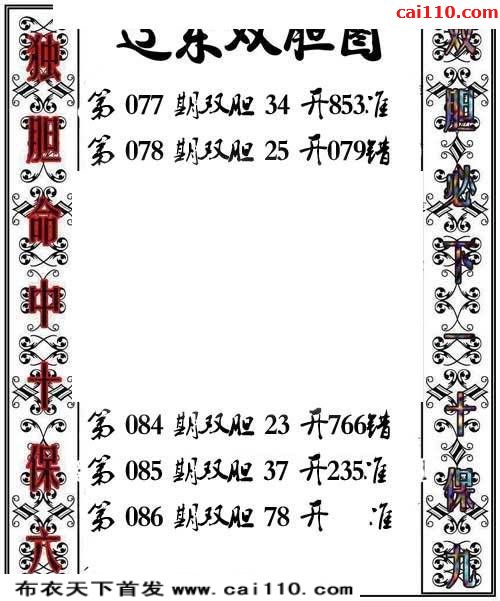 cai110.com
辽东双胆图
独胆命中十保六
双胆必下一十保九
第 077 期双胆 34 开853准
第 078 期双胆 25 开079错
第 084 期双胆 23 开766错
第 085 期双胆 37 开235准
第 086 期双胆 78 开 准
布衣天下首发 www.cai110.com